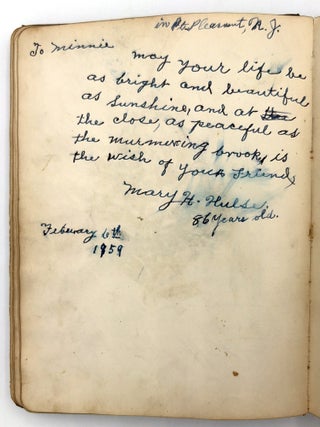 in Pt. Pleasant, N. J.
To Minnie
May your life be
as bright and beautiful
as sunshine, and at the
the close, as peaceful as
the murmuring brook, is
the wish of your Friend,
Mary H. Hulse.
86 years old.
Feberary 6th
1959